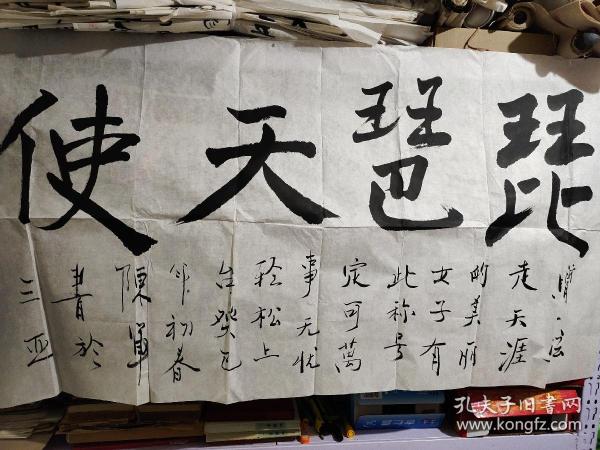 琵琶天使
走天涯
的美丽
女子有
此称号
定可萬
事无忧
轻松上
台癸巳
年初春
陳軍
書於
三亚
孔夫子旧书网
www.kongfz.com